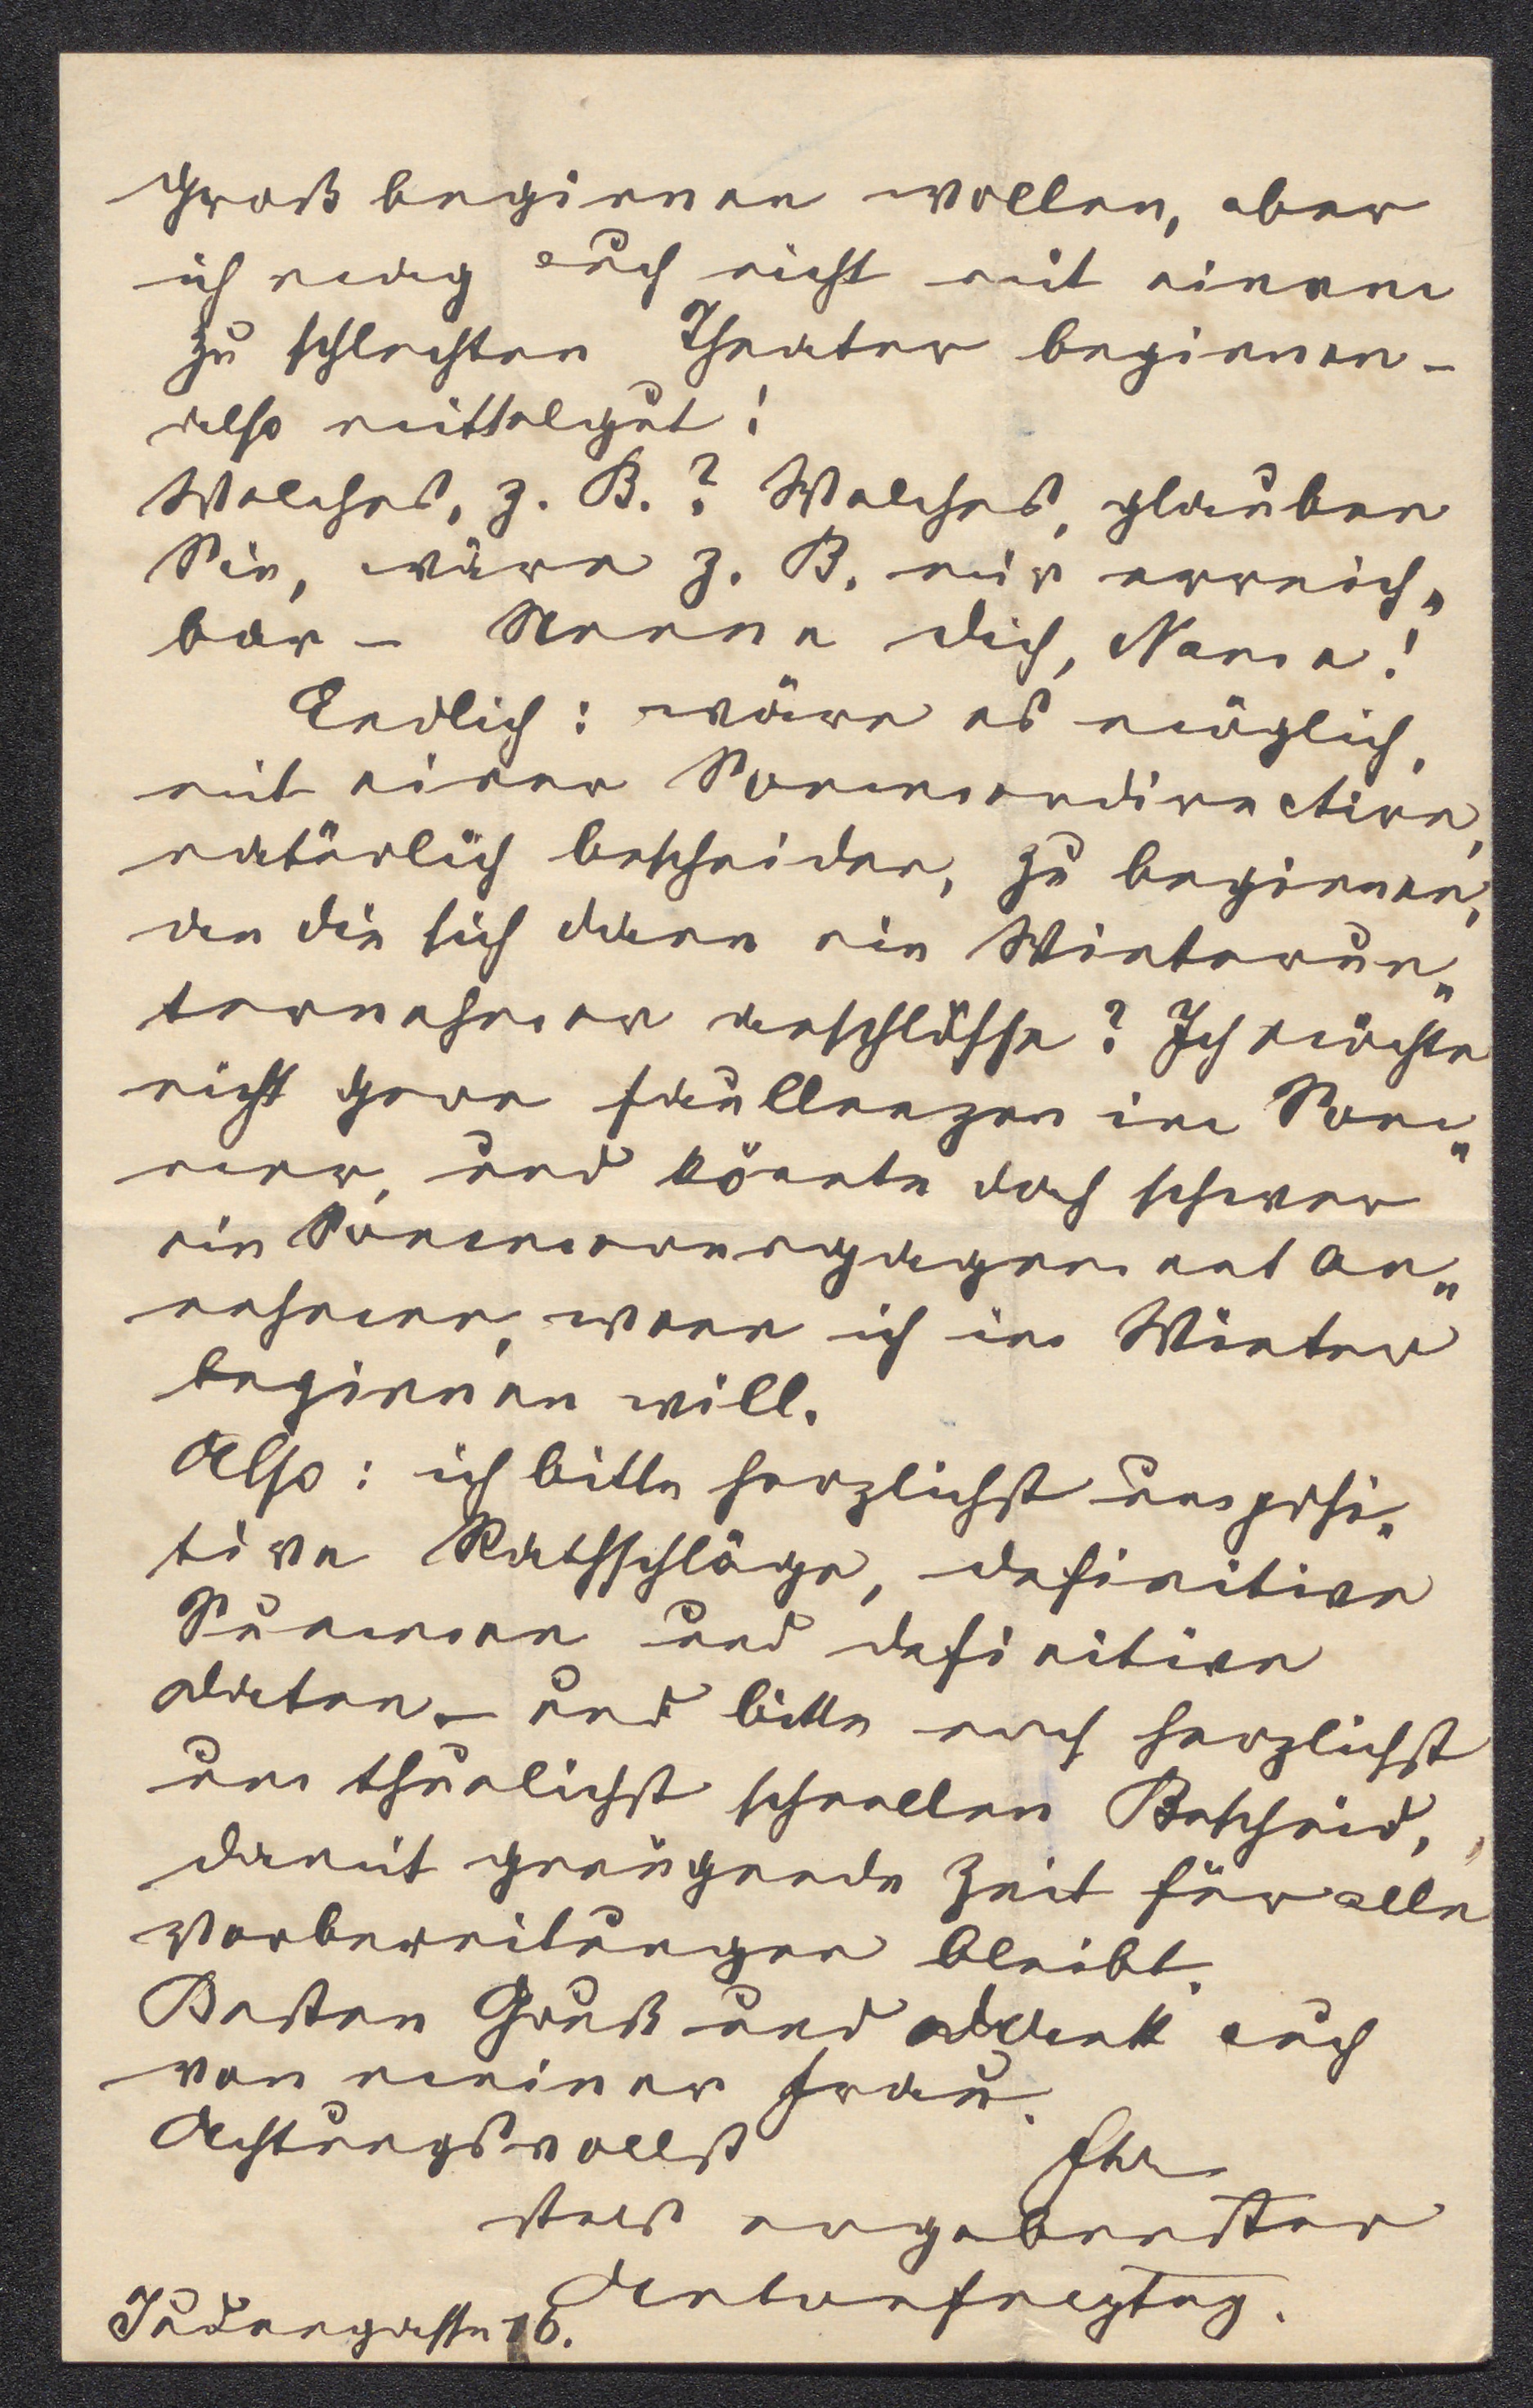 Groß beginnen wollen, aber
ich mag auch nicht mit einem
zu schlechten Theater beginnen –
also mittelgut!
Welches, z. B.? Welches, glauben
Sie, wäre z. B. mir erreich„
bar – Nenne dich, Name!
Endlich: wäre es möglich,
mit einer Sommerdirection,
natürlich bescheiden, zu beginnen,
an die sich dann ein Winterun„
ternehmen anschlösse? Ich möchte
nicht gern faullenzen im Som„
mer, und könnte doch schwer
ein Sommerengagement an„
nehmen, wenn ich im Winter
beginnen will.
Also: ich bitte herzlichst um posi„
tive Rathschläge, definitive
Summen und definitive
Daten. – und bitte noch herzlichst
um thunlichst schnellen Bescheid,
damit genügende Zeit für alle
Vorbereitungen bleibt.
Besten Gruß und Dank auch
von meiner Frau.
Achtungsvollst
Ihr
stets ergebenster
Anton Freytag.
Judengasse 16.